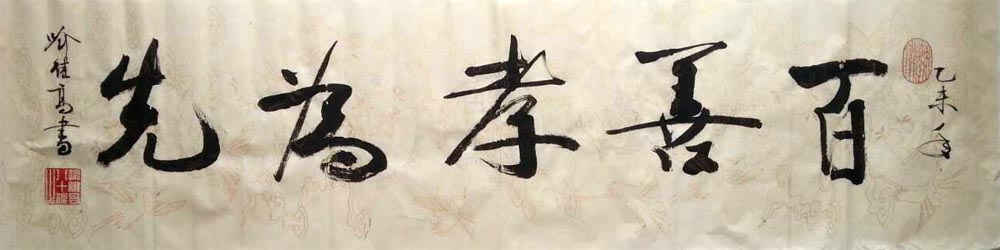 乙未年
百善孝為先
佳高書